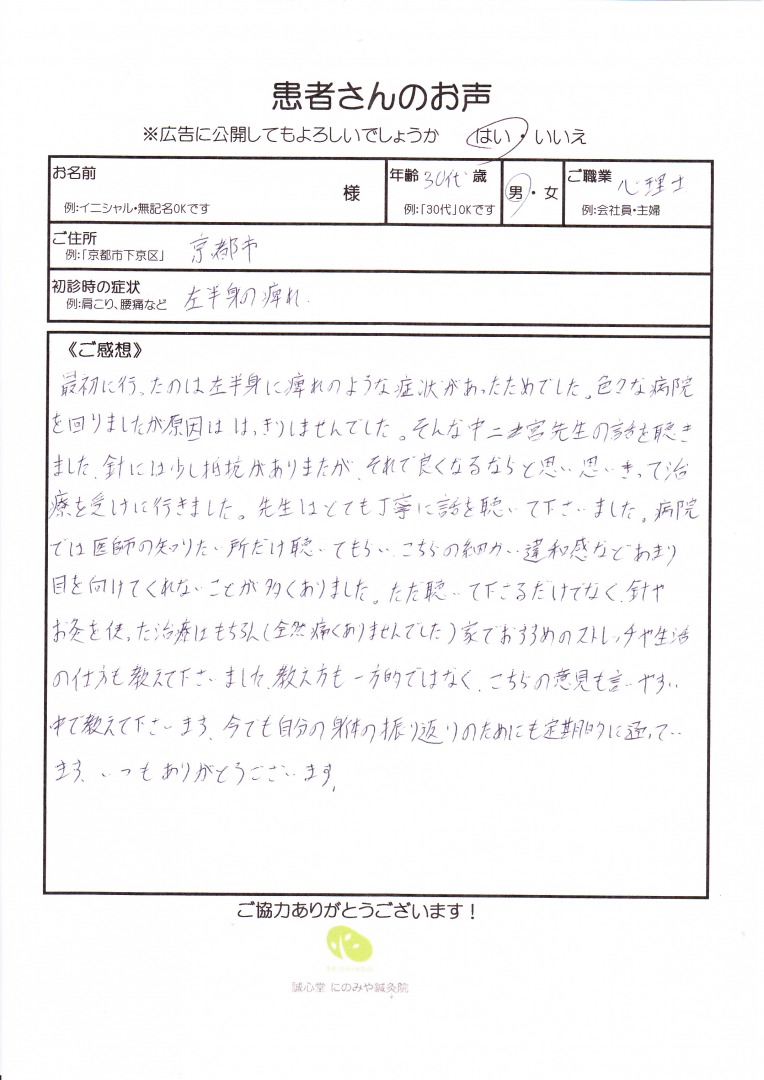 患者さんのお声
※広告に公開してもよろしいでしょうか　はい・いいえ
お名前　様　年齢 30代 歳　男・女　ご職業 心理士
例:イニシャル・無記名OKです　例:「30代」OKです　例:会社員・主婦
ご住所　京都市
例:「京都市下京区」
初診時の症状　左半身の痺れ.
例:肩こり、腰痛など
《ご感想》
最初に行ったのは左半身に痺れのような症状があったためでした。色々な病院
を回りましたが原因ははっきりしませんでした。そんな中二ノ宮先生の話を聴き
ました。針には少し抵抗がありまたが、それで良くなるならと思い思いきって治
療を受けに行きました。先生はとても丁寧に話を聴いて下さいました。病院
では医師の知りたい所だけ聴いてもらい、こちらの細かい違和感などあまり
目を向けてくれないことが多くありました。ただ聴いて下さるだけでなく、針や
お灸を使った治療はもちろん(全然痛くありませんでした)家でおすすめのストレッチや生活
の仕方も教えて下さいました。教え方も一方的ではなく、こちらの意見も言いやすい
中で教えて下さいます。今でも自分の身体の振り返りのためにも定期的に通ってい
ます。いつもありがとうございます。
ご協力ありがとうございます！
誠心堂 にのみや鍼灸院